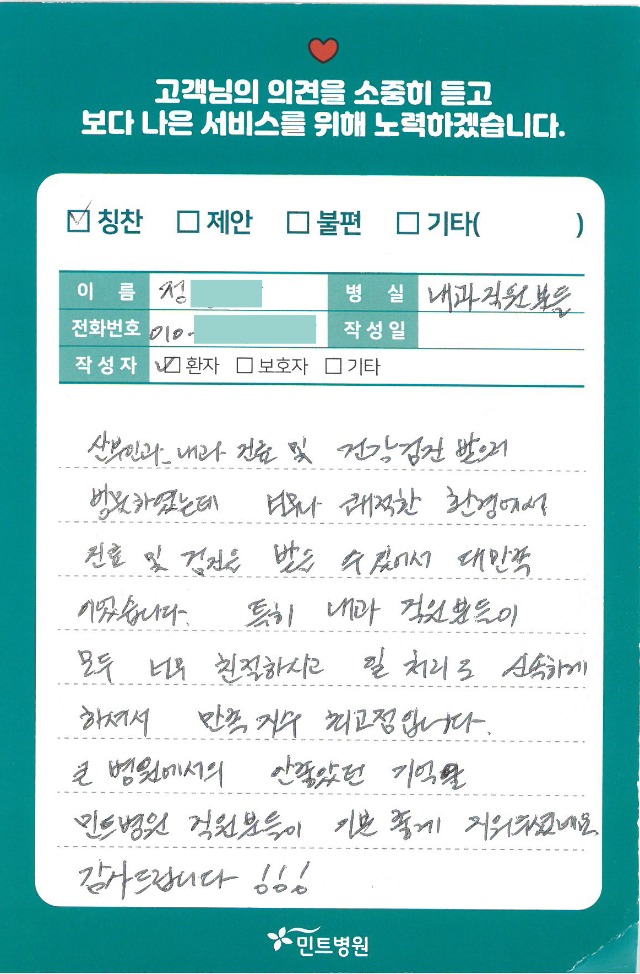 고객님의 의견을 소중히 듣고
보다 나은 서비스를 위해 노력하겠습니다.
☑ 칭찬 □ 제안 □ 불편 □ 기타( )
이 름 정 병 실 내과 직원분들
전화번호 010- 작성일
작성자 ☑ 환자 □ 보호자 □ 기타
산부인과, 내과 진료 및 건강검진 받으러
방문하였는데 너무나 쾌적한 환경에서
진료 및 검진을 받을 수 있어서 대만족
이었습니다. 특히 내과 직원분들이
모두 너무 친절하시고 일 처리도 신속하게
하셔서 만족지수 최고점입니다.
큰 병원에서의 안좋았던 기억을
민트병원 직원분들이 기분 좋게 지워주셨네요.
감사드립니다 !!!
민트병원